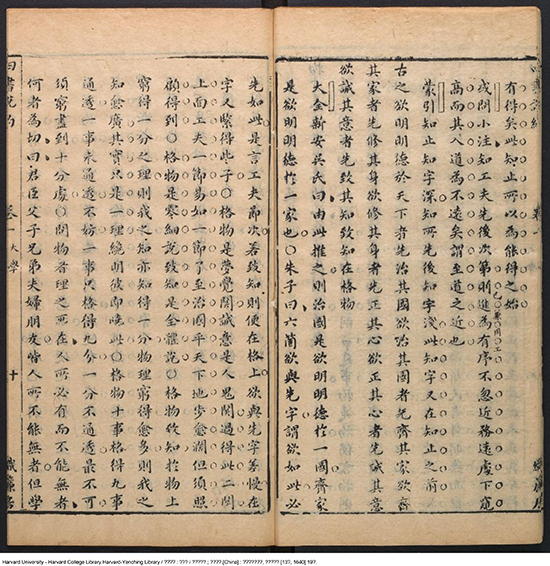 有得矣此知止所以為能得之始
或問小注知工夫先後次第則進為有序不忽近務遠處下窺
高而其入道為不遠矣謂至道之近也
蒙引知止知字深知所先後知字淺此知字又在知止之前
古之欲明明德於天下者先治其國欲治其國者先齊其家欲齊
其家者先修其身欲修其身者先正其心欲正其心者先誠其意
欲誠其意者先致其知致知在格物
大全新安吳氏曰由此推之則治國是欲明明德於一國齊家
是欲明明德於一家也○朱子曰六箇欲與先字謂欲如此必
先如此是言工夫節次若致知則便在格上欲與先字差慢在
字又緊得些子○格物是夢覺關誠意是人鬼關過得此二關
上面工夫一節易如一節了至治國平天下地步愈濶但須照
顧得到○格物是零細說致知是全體說○格物致知於物上
窮得一分之理則我之知亦知得一分物理窮得愈多則我之
知愈廣其實只是一理纔明彼即曉此○格物十事格得九事
通透一事未通透不妨一事只格得九分一分不通透最不可
須窮盡到十分處○問物者理之所在人所必有而不能無者
何者為切曰君臣父子兄弟夫婦朋友皆人所不能無者但學
四書說約
卷一大學
十
織簾居
Harvard University - Harvard College Library Harvard-Yenching Library / ???? : ??? / ????? ; ???? [China] : ???????, ????? [13?, 1640] 19?.